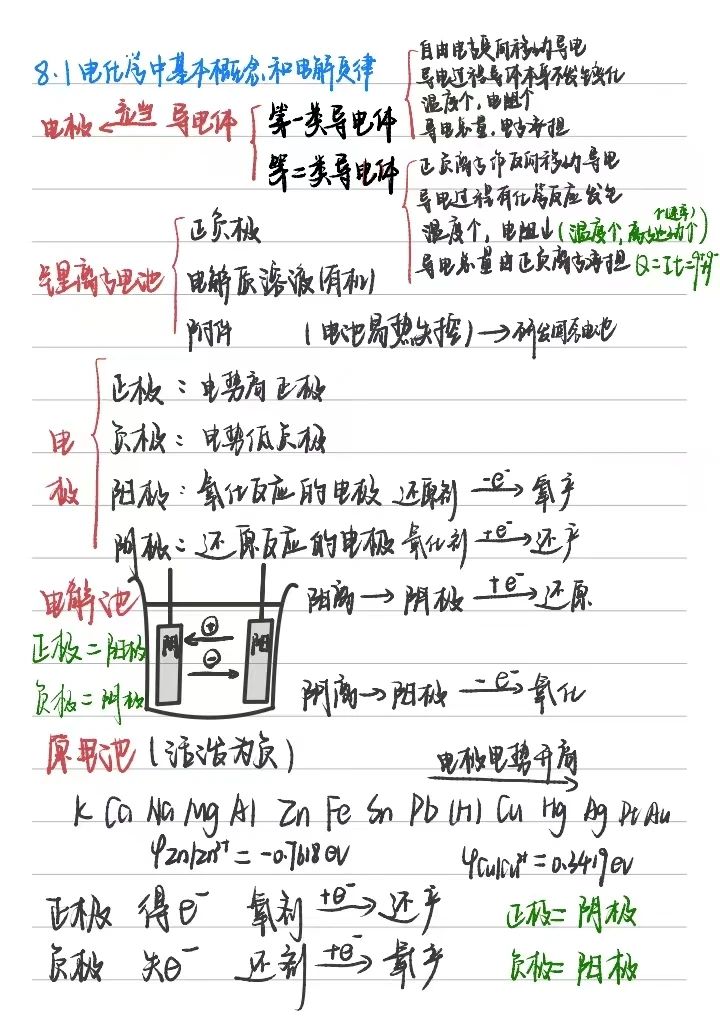 自由电子定向移动导电
8.1 电化学中基本概念和电解定律
导电过程导体本身不发生变化
温度个,电阻个
电极 ← 应当 导电体
第一类导电体
导电总量,电子承担
第二类导电体
正负离子作反向移动导电
导电过程有化学反应发生
温度个,电阻小(温度个,离子迁移个)
(速率)
导电总量由正负离子承担 Q=It=q⁺+q⁻
锂离子电池
正负极
电解质溶液(有机)
附件 (电池易热失控)→研发固态电池
电极
正极:电势高正极
负极:电势低负极
阳极:氧化反应的电极 还原剂 -e⁻→ 氧产
阴极:还原反应的电极 氧化剂 +e⁻→ 还产
电解池
阳离→阴极 +e⁻→ 还原
阴 ⊕ 阳
正极=阳极
⊖
负极=阴极
阴离→阳极 -e⁻→ 氧化
原电池(活泼为负)
电极电势升高
K Ca Na Mg Al Zn Fe Sn Pb (H) Cu Hg Ag Pt Au
φZn/Zn²⁺=-0.7618eV
φCu/Cu²⁺=0.3419eV
正极 得e⁻ 氧剂 +e⁻→ 还产 正极=阴极
负极 失e⁻ 还剂 +e⁻→ 氧产 负极=阳极